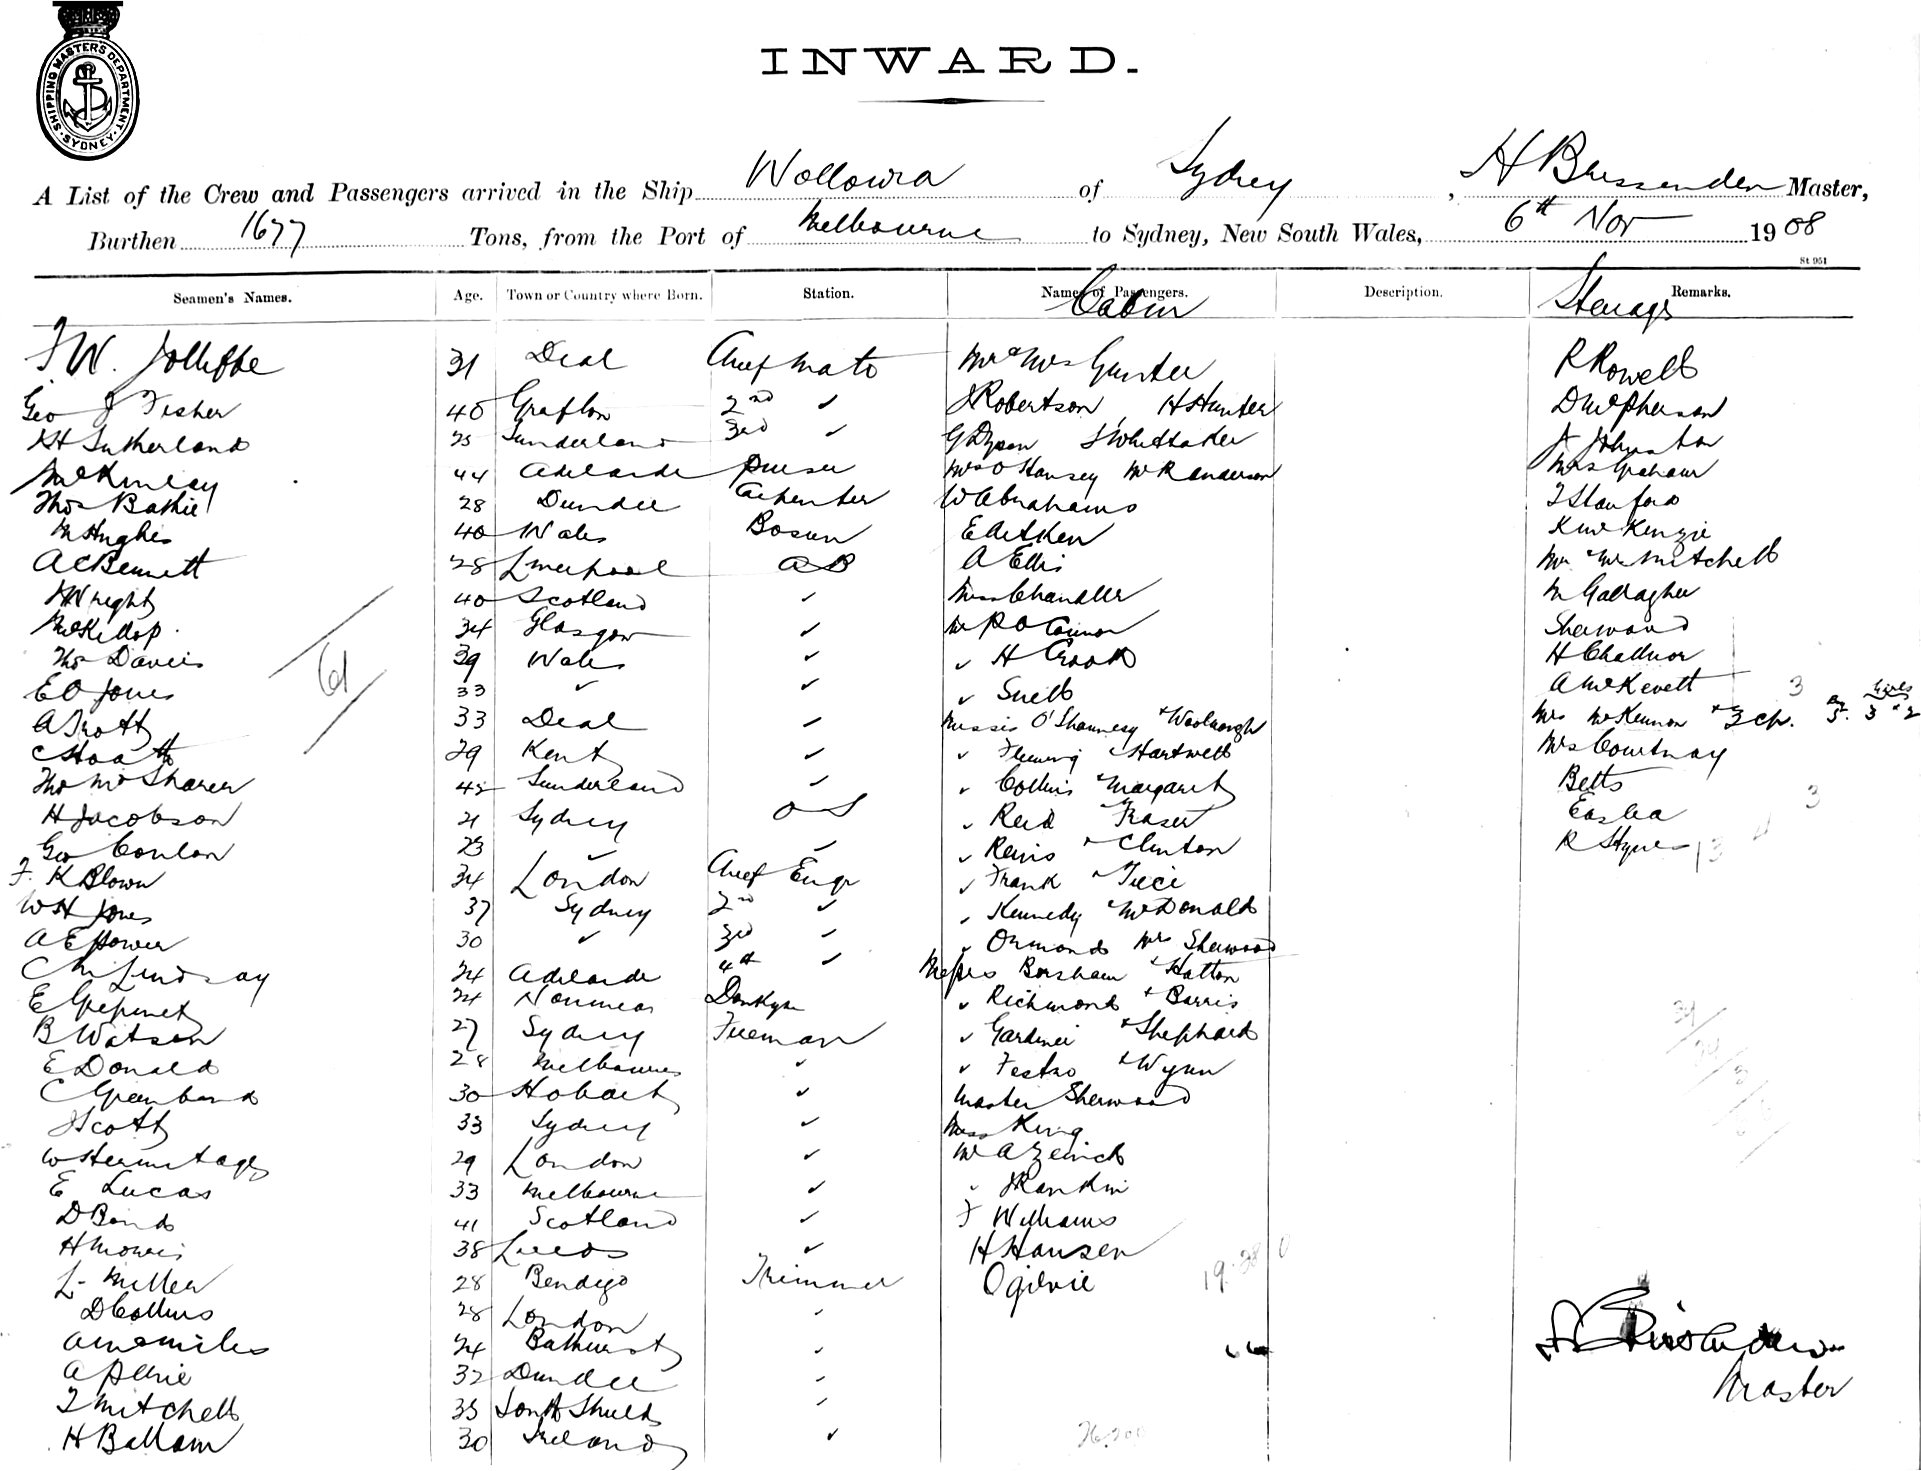 SHIPPING MASTER'S DEPARTMENT. SYDNEY
INWARD.
A List of the Crew and Passengers arrived in the Ship Wollowra of Sydney, H Brissenden Master,
Burthen 1677 Tons, from the Port of Melbourne to Sydney, New South Wales, 6th Nov 1908
St 951
Seamen's Names. Age. Town or Country where Born. Station. Names of Passengers. Description. Remarks.
Cabin Steerage
F W. Jolliffe 31 Deal Chief Mate Mr & Mrs Gunter R Rowell
Geo J Fisher 40 Grafton 2nd " J Robertson H Hunter D McPherson
Sutherland 25 Sunderland 3rd " G Dyson J Whittaker J Johnston
McKinlay 44 Adelaide Purser Mrs O'Hansey Mr R Anderson Mrs Graham
Thos Bathie 28 Dundee Carpenter W Abrahams T Stanford
M Hughes 40 Wales Bosun E Aitken K McKenzie
A C Bennett 28 Liverpool AB A Ellis Mr & Mrs Mitchell
Wright 40 Scotland " Miss Chandler M Gallagher
McKillop. 34 Glasgow " Mr P O Connor Sherwood
Thos Davies 39 Wales " " H Crook H Challnor
E O Jones 33 " " " Snell A McKevett 3
A Trott 33 Deal " Misses O'Shannesy & Woolnough Mrs McKinnon & 3 ch.
C Hoath 29 Kent " " Fleming & Hartwell Mrs Courtnay
Thos McSharer 42 Sunderland " " Collins & Margaret Betts
H Jacobson 21 Sydney OS " Reid & Fraser
Geo Conlon 23 " " " Reivis & Clinton R Stynes
F. K Blown 34 London Chief Engr " Frank & Tieci
W H Jones 37 Sydney 2nd " " Kennedy & McDonald
A E Power 30 " 3rd " " Ormond Mrs Sherwood
C M Lindsay 24 Adelaide 4th " Messrs Borsham & Hatton
E 24 Noumea Donkyn " Richmond & Barris
B Watson 27 Sydney Fireman " Gardiner & Shephard
E Donald 28 Melbourne " " Festro & Wynn
C Greenband 30 Hobart " Master Sherwood
J Scott 33 Sydney " Miss King
W Hermitage 29 London " Mr A Zerich
E Lucas 33 Melbourne " " J Rankin
D Bond 41 Scotland " F Williams
H Morris 38 Leeds " H Hansen
L Miller 28 Bendigo Trimmer Ogilvie
D Collins 28 London "
24 Bathurst "
A 32 Dundee "
T Mitchell 35 South Shields "
H Ballam 30 Ireland "
61
H Brissenden
Master